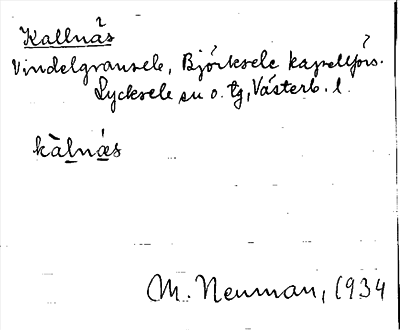 Kallnäs
Vindelgransele, Björksele kapellförs.
Lycksele sn o. tg, Västerb. l.
kàlnás
M. Neuman, 1934